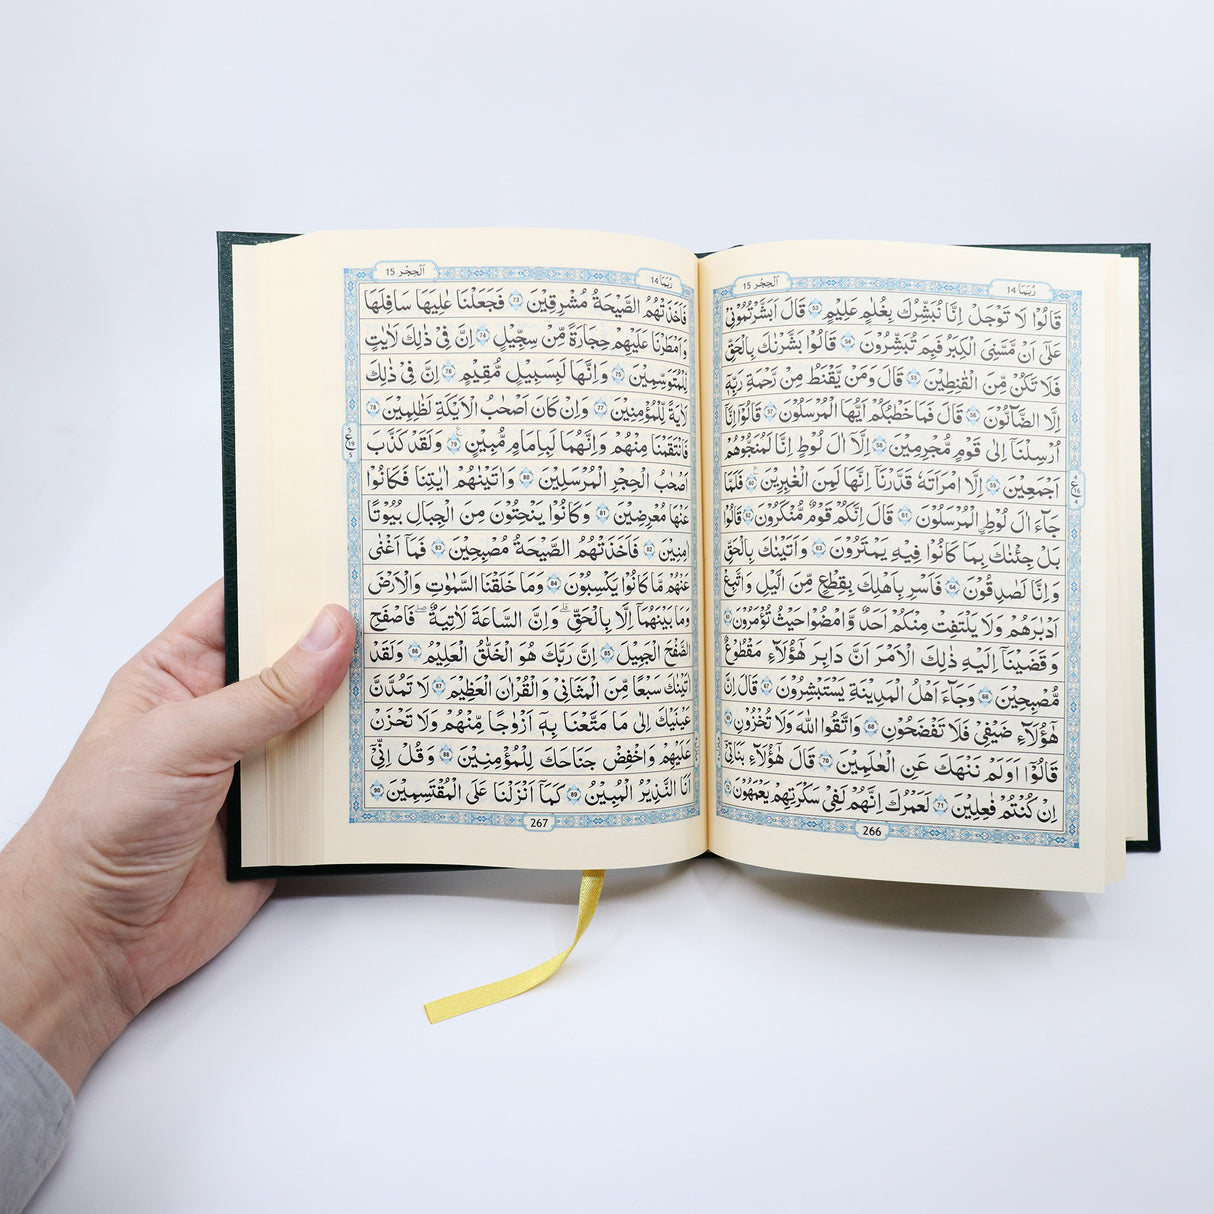 رُبَمَا 14
اَلْحِجْر 15
قَالُوْا لَا تَوْجَلْ اِنَّا نُبَشِّرُكَ بِغُلٰمٍ عَلِيْمٍ 53 قَالَ اَبَشَّرْتُمُوْنِيْ
عَلٰٓى اَنْ مَّسَّنِيَ الْكِبَرُ فَبِمَ تُبَشِّرُوْنَ 54 قَالُوْا بَشَّرْنٰكَ بِالْحَقِّ
فَلَا تَكُنْ مِّنَ الْقٰنِطِيْنَ 55 قَالَ وَمَنْ يَّقْنَطُ مِنْ رَّحْمَةِ رَبِّهٖٓ
اِلَّا الضَّآلُّوْنَ 56 قَالَ فَمَا خَطْبُكُمْ اَيُّهَا الْمُرْسَلُوْنَ 57 قَالُوْٓا اِنَّآ
اُرْسِلْنَآ اِلٰى قَوْمٍ مُّجْرِمِيْنَ 58 اِلَّآ اٰلَ لُوْطٍ اِنَّا لَمُنَجُّوْهُمْ
اَجْمَعِيْنَ 59 اِلَّا امْرَاَتَهٗ قَدَّرْنَآ اِنَّهَا لَمِنَ الْغٰبِرِيْنَ 60 فَلَمَّا
جَآءَ اٰلَ لُوْطِ الْمُرْسَلُوْنَ 61 قَالَ اِنَّكُمْ قَوْمٌ مُّنْكَرُوْنَ 62 قَالُوْا
بَلْ جِئْنٰكَ بِمَا كَانُوْا فِيْهِ يَمْتَرُوْنَ 63 وَاَتَيْنٰكَ بِالْحَقِّ
وَاِنَّا لَصٰدِقُوْنَ 64 فَاَسْرِ بِاَهْلِكَ بِقِطْعٍ مِّنَ الَّيْلِ وَاتَّبِعْ
اَدْبَارَهُمْ وَلَا يَلْتَفِتْ مِنْكُمْ اَحَدٌ وَّامْضُوْا حَيْثُ تُؤْمَرُوْنَ 65
وَقَضَيْنَآ اِلَيْهِ ذٰلِكَ الْاَمْرَ اَنَّ دَابِرَ هٰٓؤُلَآءِ مَقْطُوْعٌ
مُّصْبِحِيْنَ 66 وَجَآءَ اَهْلُ الْمَدِيْنَةِ يَسْتَبْشِرُوْنَ 67 قَالَ اِنَّ
هٰٓؤُلَآءِ ضَيْفِيْ فَلَا تَفْضَحُوْنِ 68 وَاتَّقُوا اللّٰهَ وَلَا تُخْزُوْنِ 69
قَالُوْٓا اَوَلَمْ نَنْهَكَ عَنِ الْعٰلَمِيْنَ 70 قَالَ هٰٓؤُلَآءِ بَنٰتِيْٓ
اِنْ كُنْتُمْ فٰعِلِيْنَ 71 لَعَمْرُكَ اِنَّهُمْ لَفِيْ سَكْرَتِهِمْ يَعْمَهُوْنَ 72
ع
16
4
266
رُبَمَا 14
اَلْحِجْر 15
فَاَخَذَتْهُمُ الصَّيْحَةُ مُشْرِقِيْنَ 73 فَجَعَلْنَا عَالِيَهَا سَافِلَهَا
وَاَمْطَرْنَا عَلَيْهِمْ حِجَارَةً مِّنْ سِجِّيْلٍ 74 اِنَّ فِيْ ذٰلِكَ لَاٰيٰتٍ
لِّلْمُتَوَسِّمِيْنَ 75 وَاِنَّهَا لَبِسَبِيْلٍ مُّقِيْمٍ 76 اِنَّ فِيْ ذٰلِكَ
لَاٰيَةً لِّلْمُؤْمِنِيْنَ 77 وَاِنْ كَانَ اَصْحٰبُ الْاَيْكَةِ لَظٰلِمِيْنَ 78
فَانْتَقَمْنَا مِنْهُمْ وَاِنَّهُمَا لَبِاِمَامٍ مُّبِيْنٍ 79 وَلَقَدْ كَذَّبَ
اَصْحٰبُ الْحِجْرِ الْمُرْسَلِيْنَ 80 وَاٰتَيْنٰهُمْ اٰيٰتِنَا فَكَانُوْا
عَنْهَا مُعْرِضِيْنَ 81 وَكَانُوْا يَنْحِتُوْنَ مِنَ الْجِبَالِ بُيُوْتًا
اٰمِنِيْنَ 82 فَاَخَذَتْهُمُ الصَّيْحَةُ مُصْبِحِيْنَ 83 فَمَآ اَغْنٰى
عَنْهُمْ مَّا كَانُوْا يَكْسِبُوْنَ 84 وَمَا خَلَقْنَا السَّمٰوٰتِ وَالْاَرْضَ
وَمَا بَيْنَهُمَآ اِلَّا بِالْحَقِّ ۗ وَاِنَّ السَّاعَةَ لَاٰتِيَةٌ فَاصْفَحِ
الصَّفْحَ الْجَمِيْلَ 85 اِنَّ رَبَّكَ هُوَ الْخَلّٰقُ الْعَلِيْمُ 86 وَلَقَدْ
اٰتَيْنٰكَ سَبْعًا مِّنَ الْمَثَانِيْ وَالْقُرْاٰنَ الْعَظِيْمَ 87 لَا تَمُدَّنَّ
عَيْنَيْكَ اِلٰى مَا مَتَّعْنَا بِهٖٓ اَزْوَاجًا مِّنْهُمْ وَلَا تَحْزَنْ
عَلَيْهِمْ وَاخْفِضْ جَنَاحَكَ لِلْمُؤْمِنِيْنَ 88 وَقُلْ اِنِّيْٓ
اَنَا النَّذِيْرُ الْمُبِيْنُ 89 كَمَآ اَنْزَلْنَا عَلَى الْمُقْتَسِمِيْنَ 90
3
ع
19
5
267